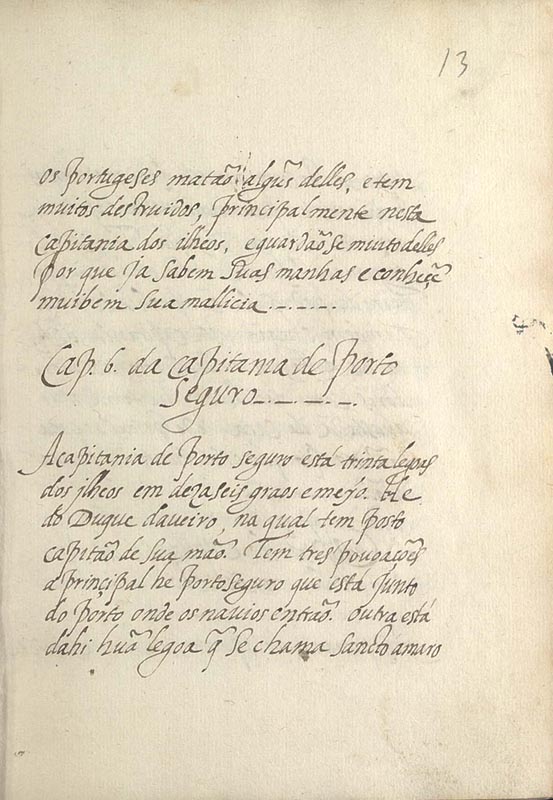 13
os portugeses matão algũs delles, e tem
muitos destruidos, principalmente nesta
Capitania dos ilheos, e guardãose muito delles
por que ja sabem suas manhas e conheçẽ
muibem sua mallicia
Cap. 6. da Capitania de Porto
Seguro
A capitania de Porto seguro está trinta legoas
dos ilheos em dezaseis graos e meyo. He
do Duque daveiro, na qual tem posto
capitão de sua mão. Tem tres pouoações
a principal he Porto seguro que está junto
do porto onde os navios entrão. outra está
dahi huã legoa q̃ se chama sancto amaro